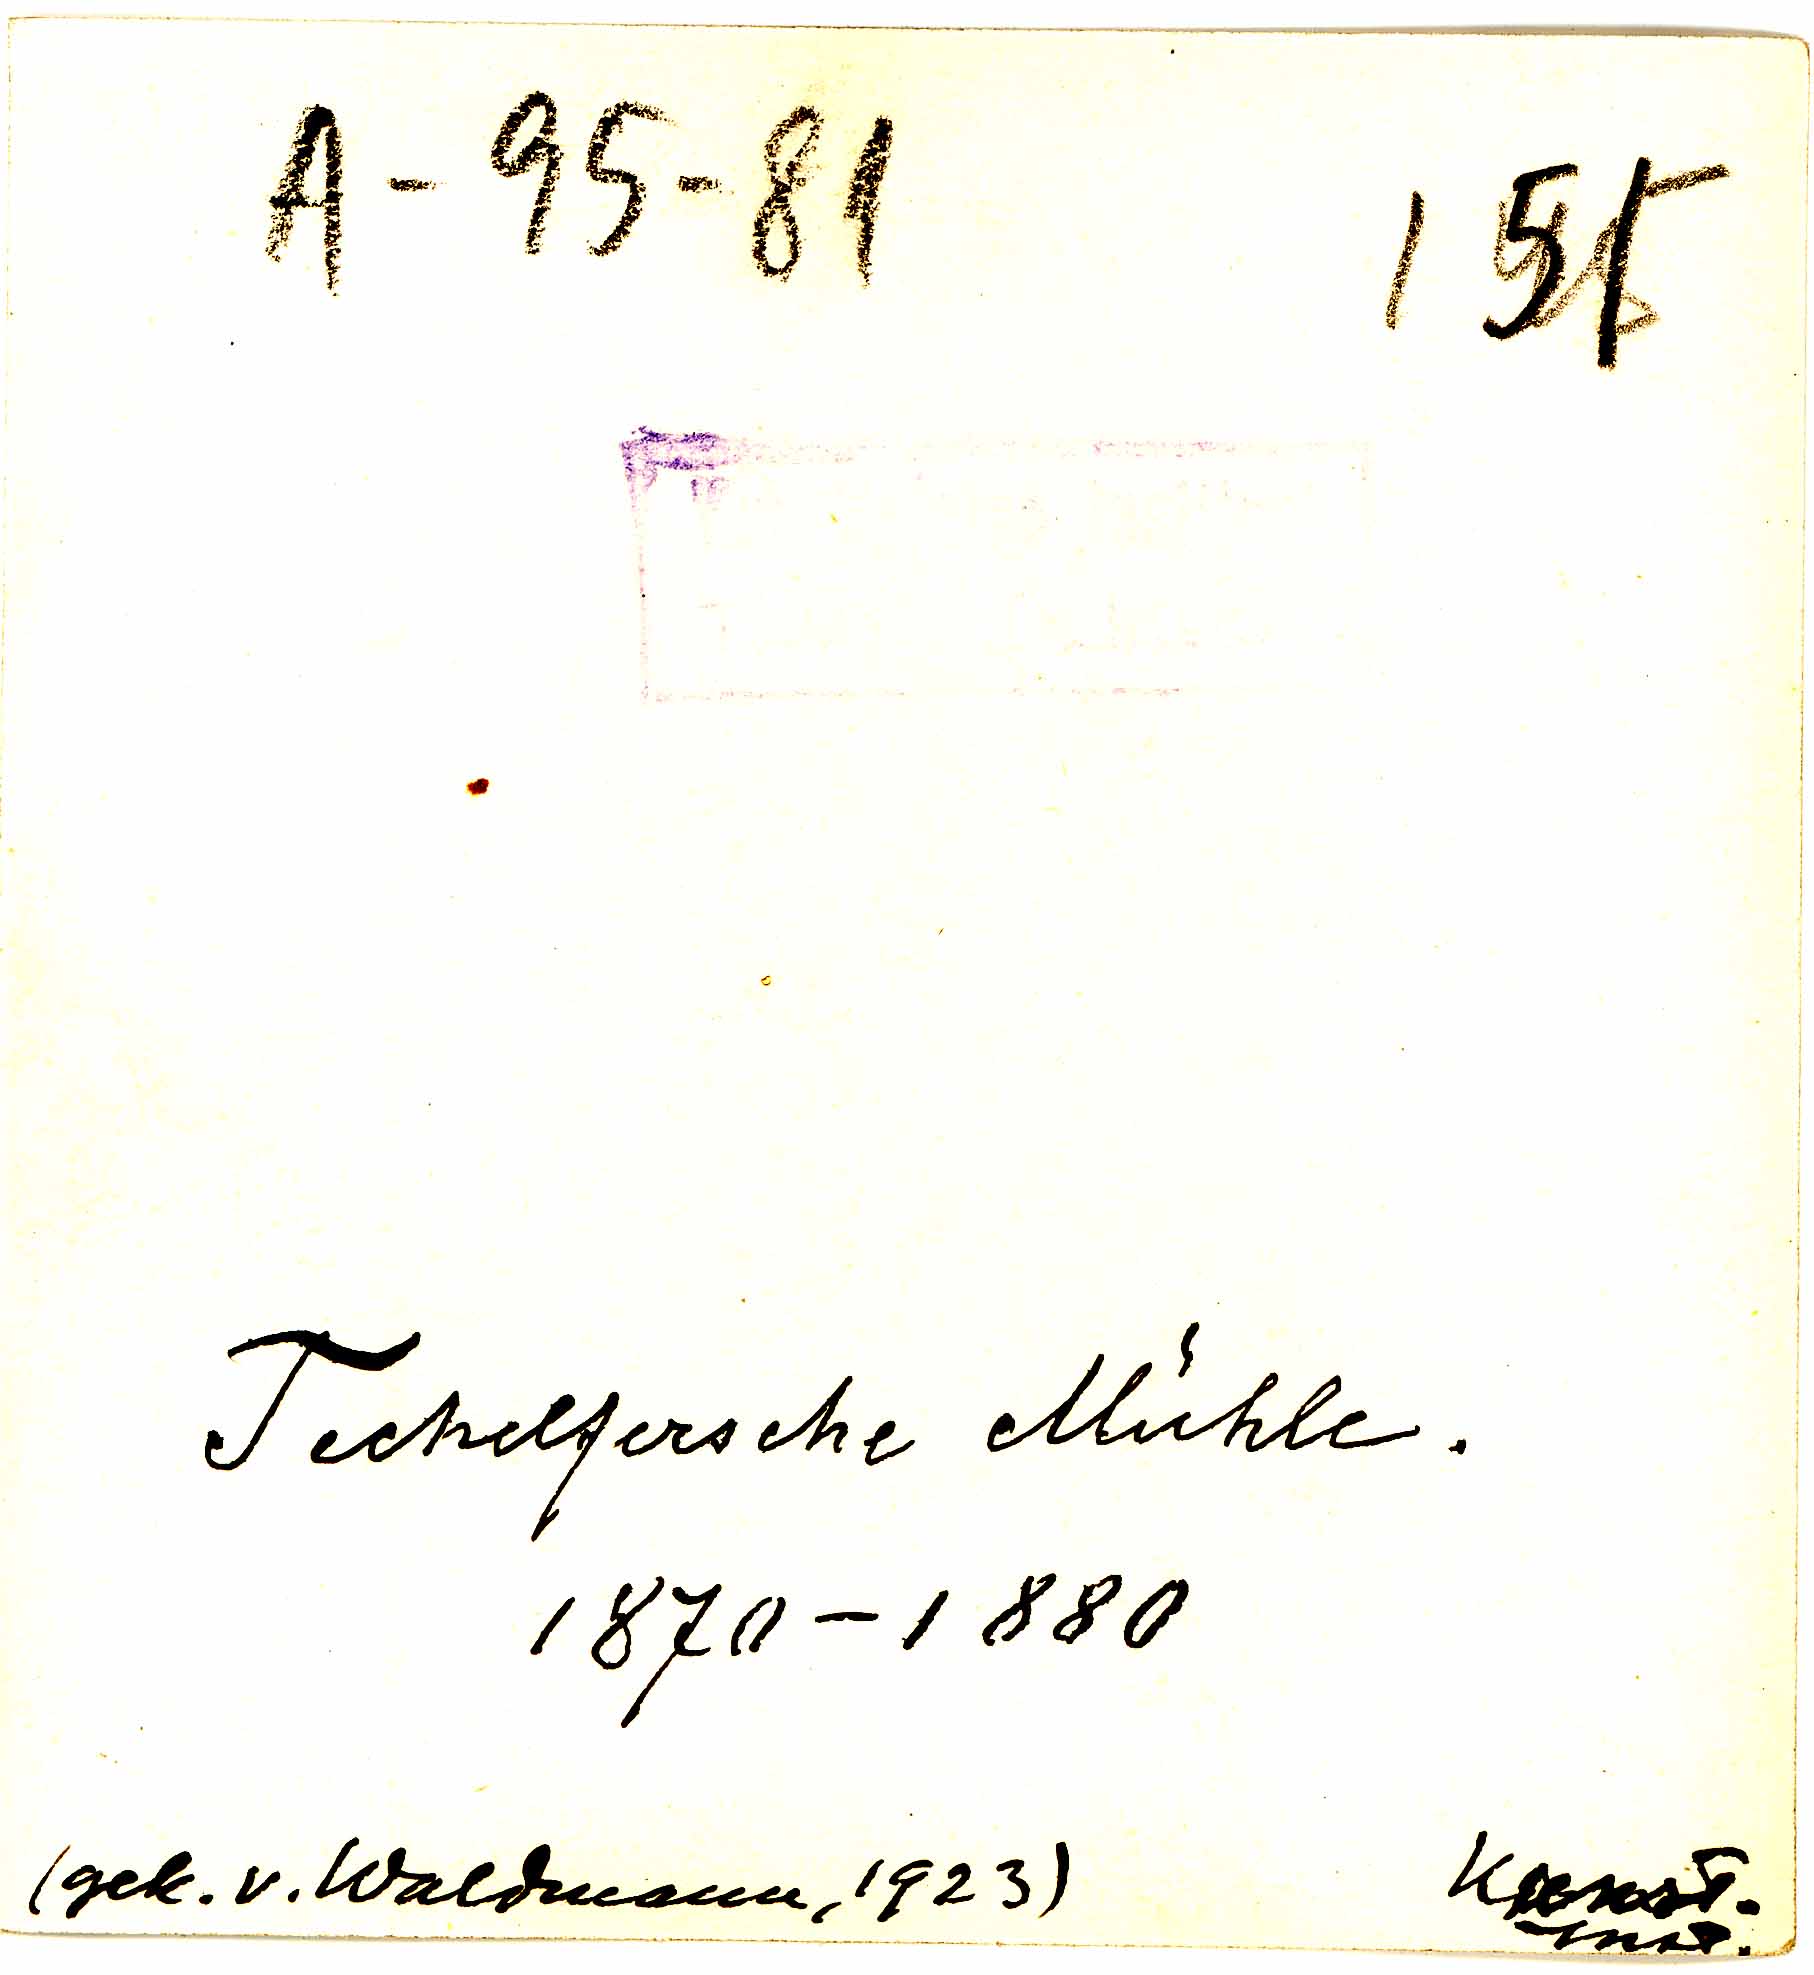 A-95-81
Techelfersche Mühle.
1870-1880
(gek. v. Waldmann, 1923)
Kunst.
Inst.